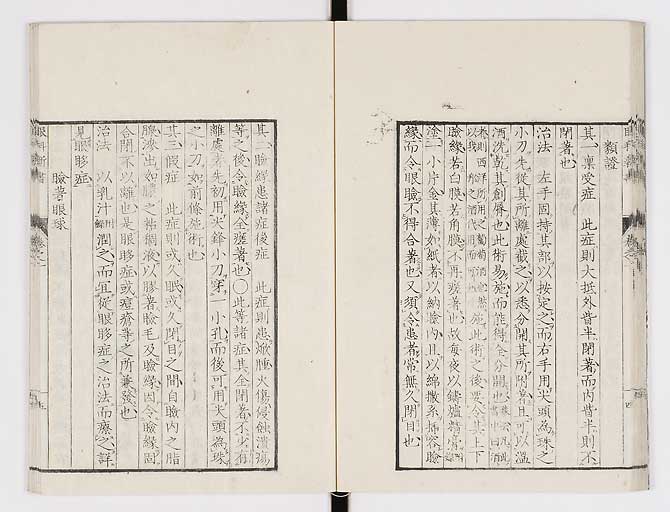 類證
其一 稟受症 此症則大抵外眥半閉著而内眥半則不
閉著也
治法 左手固持其部以按定之而右手用尖頭為珠之
小刀先從其所離處截之以悉分開其所附著且可以溫
酒洗乾其創唇也此術易施而能得全分開也
施此術之後要令其上下
瞼緣若白膜若角膜不再癒著也故每夜以鑄爐精膏
塗一小片金其薄如紙者以納瞼内且以綿撒系插容瞼
緣而令眼瞼不得合著也又須令患者常無久閉目也
其二 瞼緣患諸症後症 此症則患焮腫火傷侵蝕潰瘍
等之後令瞼緣全癒著也○此等諸症其全閉著不少有
離處者先初用尖鋒小刀穿一小孔而後可用尖頭為珠
之小刀如前條施術也
其三 假症 此症則或久眠或久閉目之間自瞼内之脂
腺滲出如膠之粘稠液以膠著瞼毛及瞼緣因令瞼緣固
合閉不以離也是眼眵症或痘瘡等之所兼發也
治法 以乳汁潤之而宜從眼眵症之治法而療之詳
見眼眵症
瞼著眼球